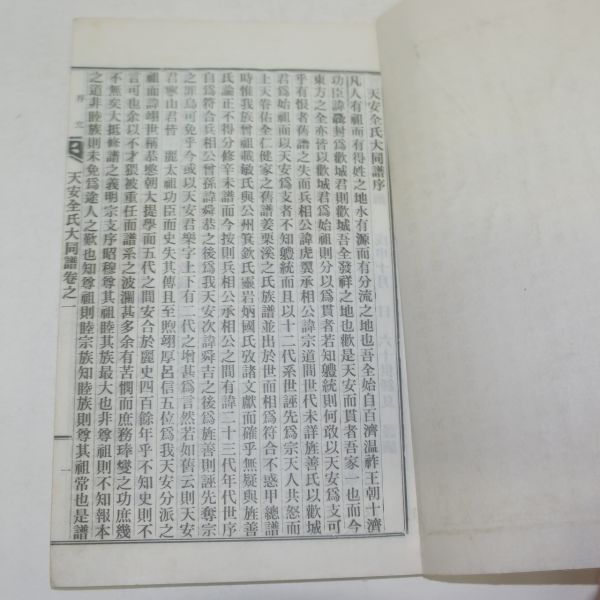 天安全氏大同譜序
凡人有祖而有得姓之地水有源而有分流之地也吾全始自百濟温祚王朝十濟
功臣諱聶封爲歡城君則歡城吾全發祥之地也歡是天安而貫者吾家一也而今
東方之全亦皆以歡城君爲始祖則分以爲貫者若知軆統則何敢以天安爲支可
乎有恨者舊譜之失而兵相公諱虎翼承相公諱宗道間世代未詳旌善氏以歡城
君爲始祖而以天安爲支者不知軆統而且以十二代系世誣先爲宗天人共怒而
上天眷佑全仁健家之舊譜姜栗溪之氏族譜並出於世而相爲符合不惑甲總譜
時惟我曾祖載敏氏與公州箕欽氏靈岩炳國氏攷諸文獻而確乎無疑與旌善
氏論正不得分修辛未譜而今按則兵相公承相公之間有諱二十三代年代世序
自爲符合兵相公曾孫諱舜恭之後爲我天安次諱舜吉之後爲旌善則誣先奪宗
之罪烏可免乎今或以天安君樂字上下有二代之增甚爲言然若如舊云則天安
君寧山君皆 麗太祖功臣而史失其傳且至煦翊厚呂信五位爲我天安分派之
祖而諱翊世稱恭愍朝大提學而五代之間安合於麗史四百餘年乎不知史則不
言可也余以不才猥被重任而譜系之波瀾甚多余有苦憫而庶務琫燮之功庶幾
不無矣大抵修譜之義明宗支序昭穆尊其祖睦其族最大也非尊祖則不知報本
之道非睦族則未免爲途人之歎也知尊祖則睦宗族知睦族則尊其祖常也是譜
天安全氏大同譜卷之一
序文
一